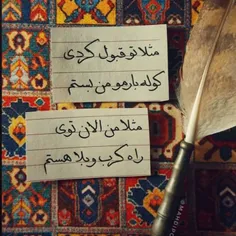 مثلا تو قبول کردی
کوله بارمو من بستم
مثلا من الان توی
راه کرب و بلا هستم